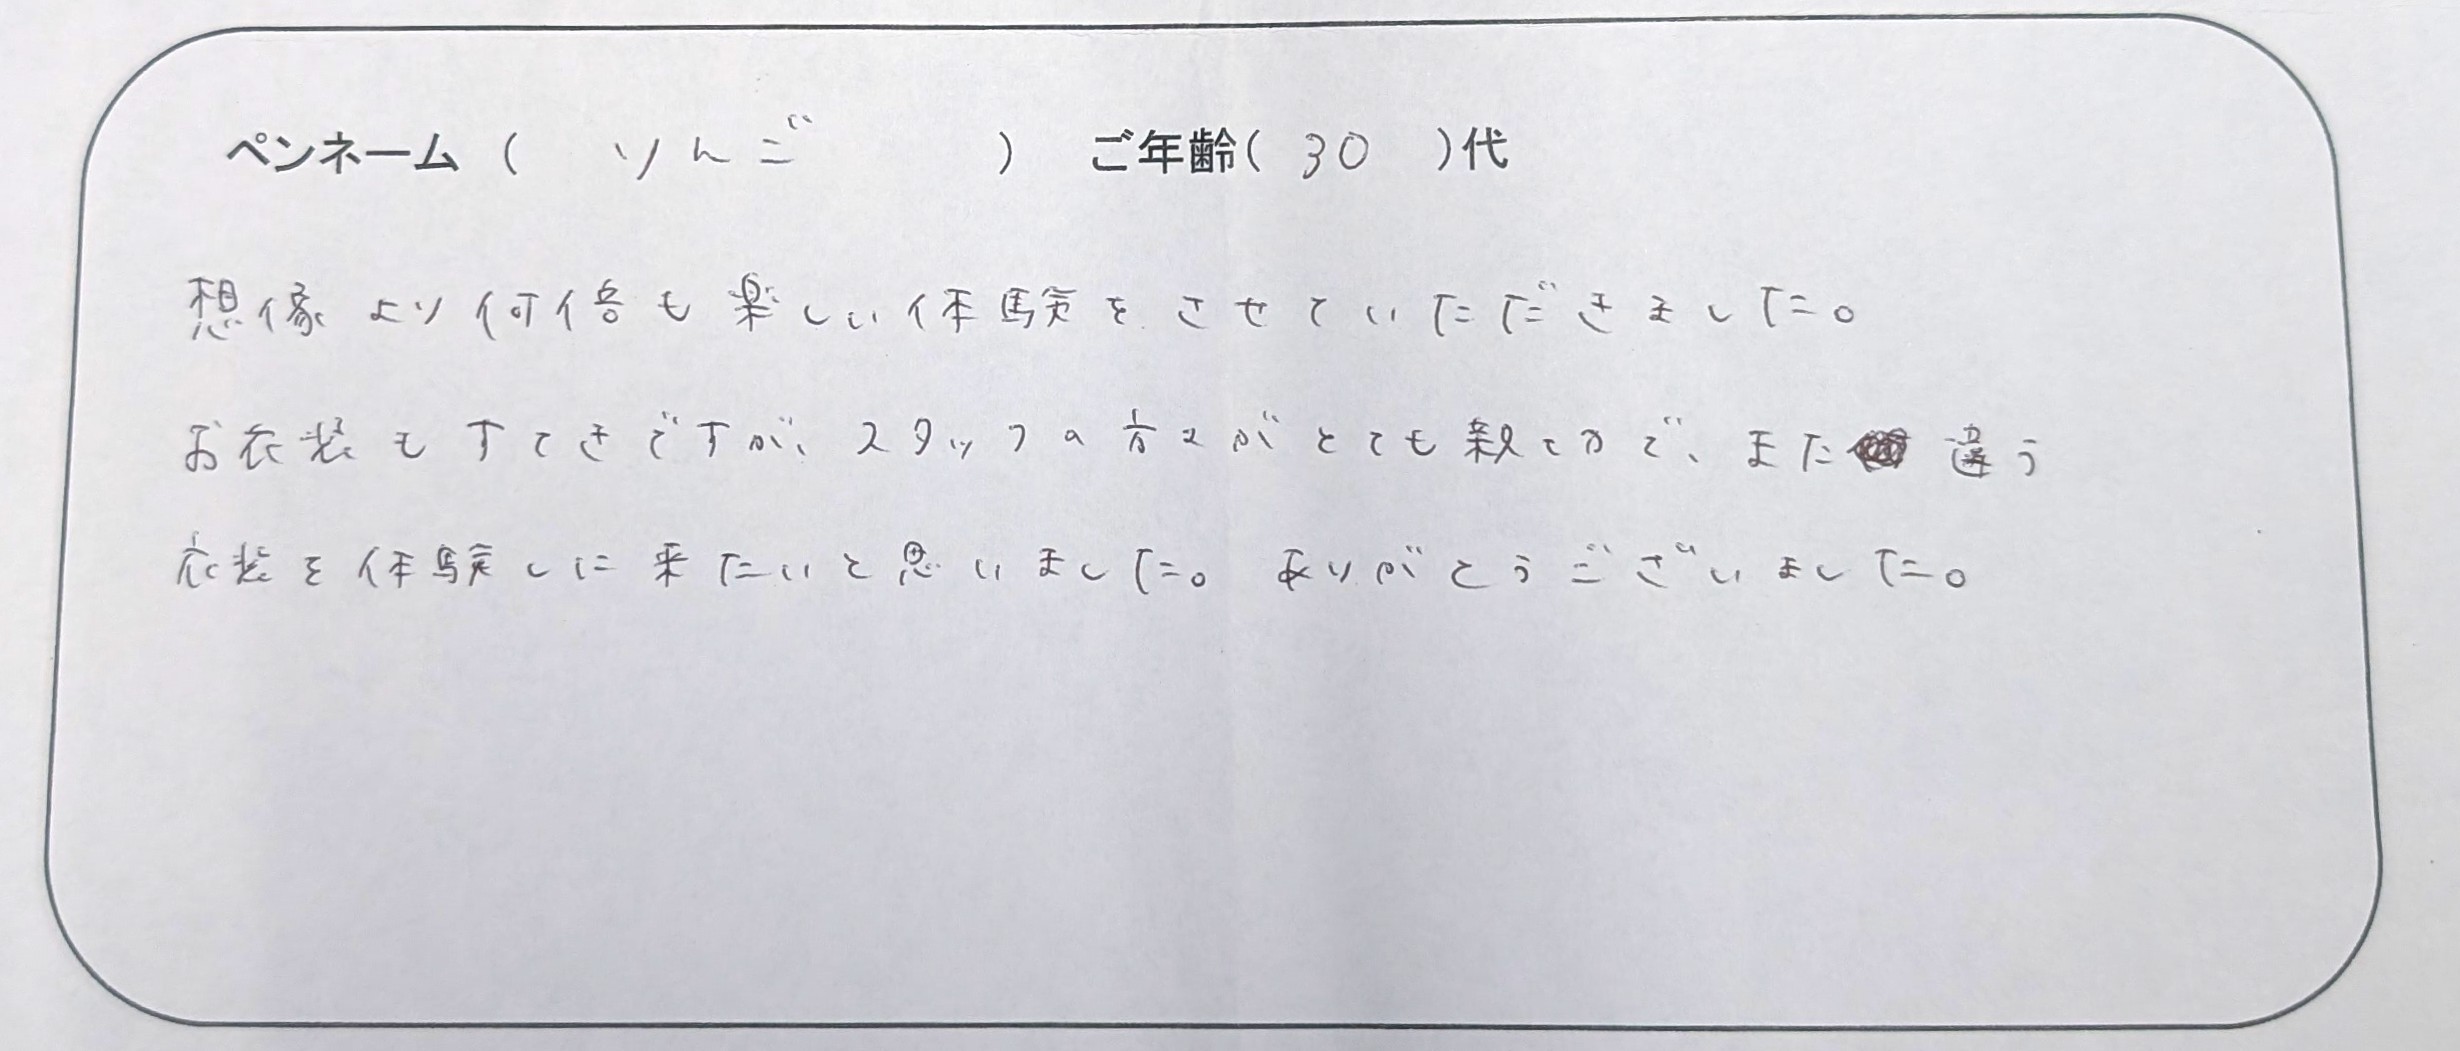 ペンネーム ( りんご ) ご年齢( 30 )代
想像より何倍も楽しい体験をさせていただきました。
お衣装もすてきですが、スタッフの方々がとても親切で、また違う
衣装を体験しに来たいと思いました。ありがとうございました。